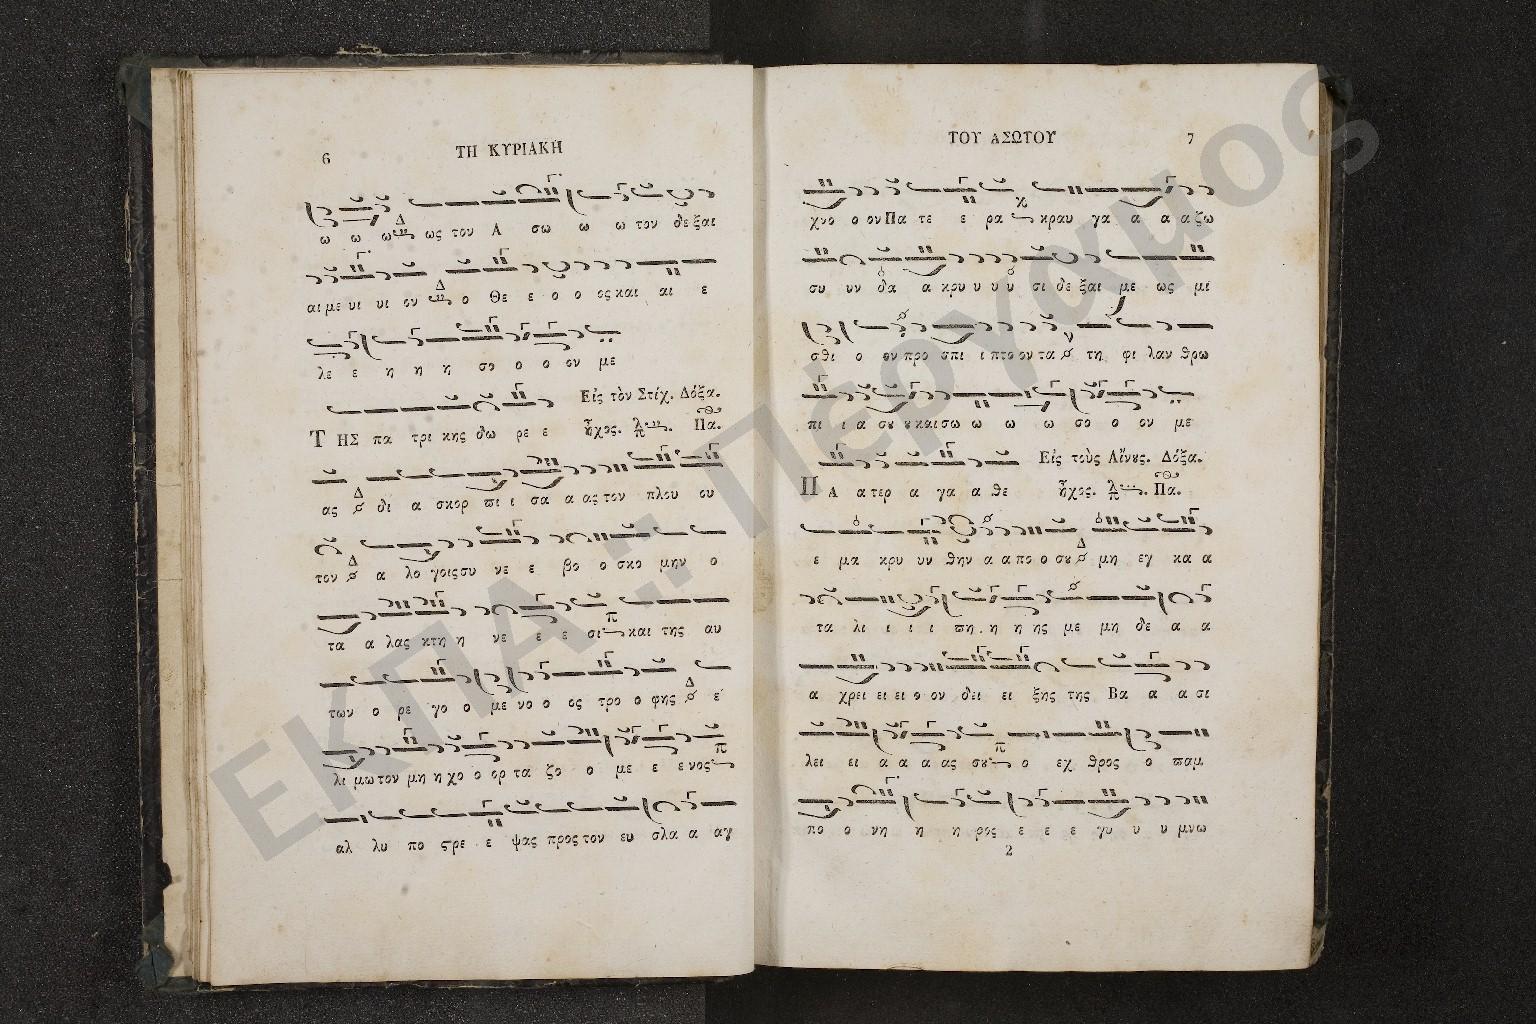 6 ΤΗ ΚΥΡΙΑΚΗ
ω ω ω ως τον Α σω ω ω τον δε ξαι
αι με υι υι ον ο Θε ε ο ο ο ος και αι ε
λε ε η η η σο ο ο ον με
Εἰς τὸν Στίχ. Δόξα.
Τ ΗΣ πα τρι κης δω ρε ε ἦχος. Πα.
ας δι α σκορ πι ι σα α ας τον πλου ου
τον α λο γοις συ νε ε βο ο σκο μην ο
τα α λας κτη η νε ε ε σι και της αυ
των ο ρε γο ο με νο ο ος τρο ο φης ε
λι μωτον μη η χο ο ορ τα ζο ο με ε ε νος
αλ λυ πο ςρε ε ψας προς τον ευ σλα α αγ
ΤΟΥ ΑΣΩΤΟΥ 7
χνο ο ον Πα τε ε ρα κραυ γα α α α ζω
συ υν δα α κρυ υ υ υ σι δε ξαι με ως μι
σθι ο ον προ σπι ι πτο ον τα τη φι λαν θρω
πι ι α σου και σω ω ω ω σο ο ον με
Εἰς τοὺς Αἴνους. Δόξα.
Π Α α τερ α γα α θε ἦχος. Πα.
ε μα κρυ υν θην α α πο ο σου μη εγ κα α
τα λι ι ι ι πη . η η ης με μη δε α α
α χρει ει ει ο ον δει ει ξης της Βα α α σι
λει ει α α α ας σου ο εχ θρος ο παμ
πο ο νη η η ρος ε ε ε γυ υ υ μνω
2
ΕΚΠΑ:: Πέργαμος